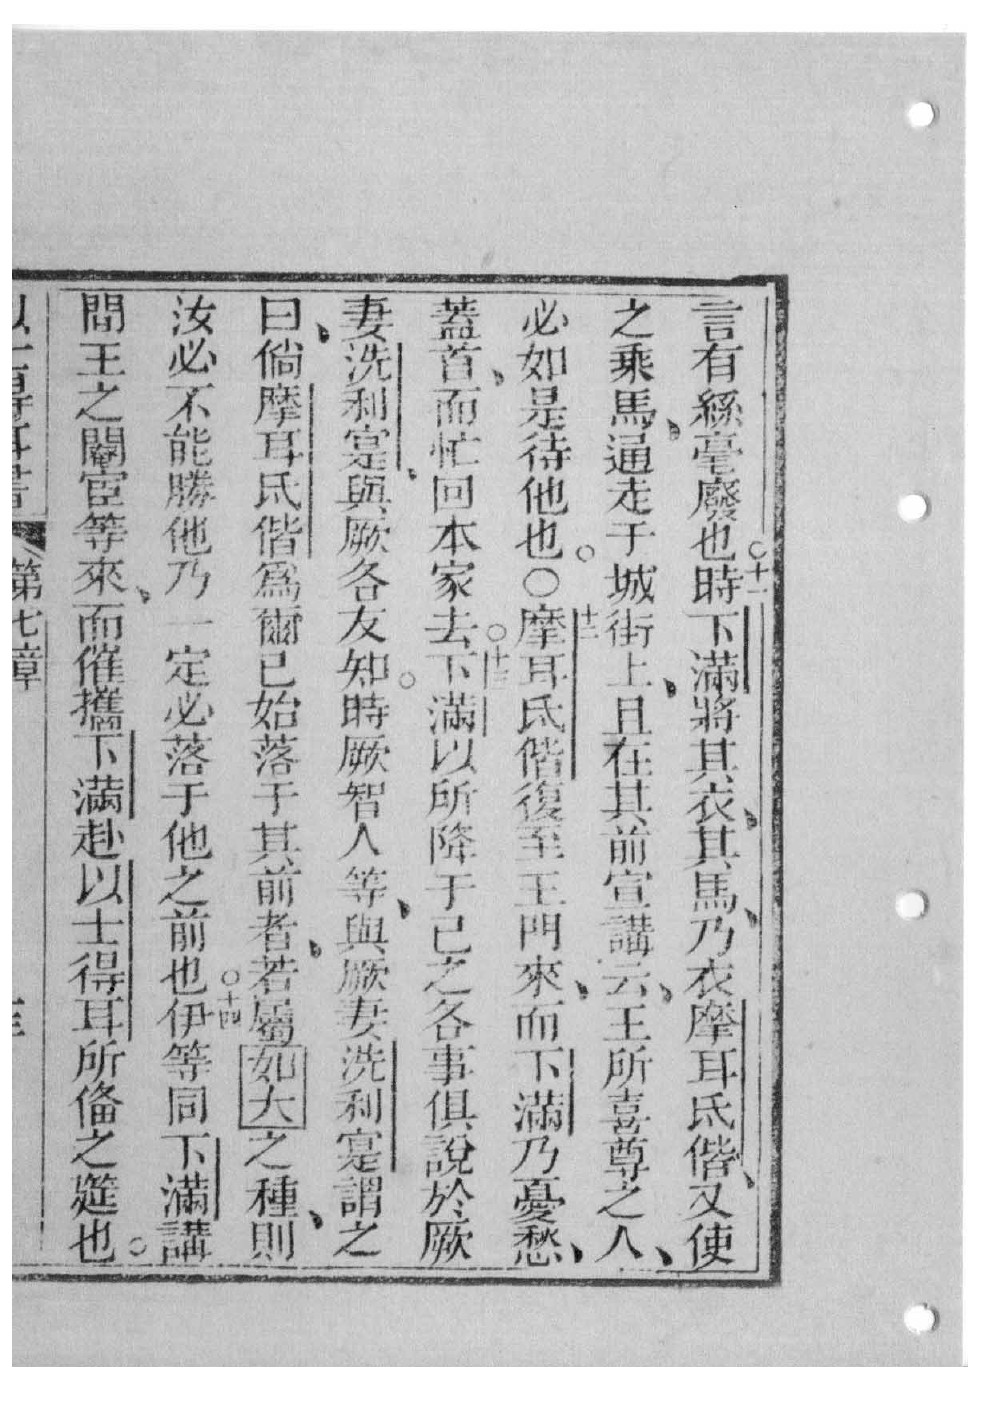 言有絲毫廢也○十一時下滿將其衣、其馬、乃衣摩耳氐偕、又使
之乘馬、通走于城街上、且在其前宣講云、王所喜尊之人、
必如是待他也。○十二摩耳氐偕復至王門來、而下滿乃憂愁、
蓋首、而忙回本家去○十三下滿以所降于己之各事俱說於厥
妻洗利寔、與厥各友知。時厥智人等、與厥妻洗利寔謂之
曰、倘摩耳氐偕為爾已始落于其前者、若屬如大之種、則
汝必不能勝他乃一定必落于他之前也○十四伊等同下滿講
間王之閹宦等來、而催攜下滿赴以士得耳所俻之筵也。
第七章